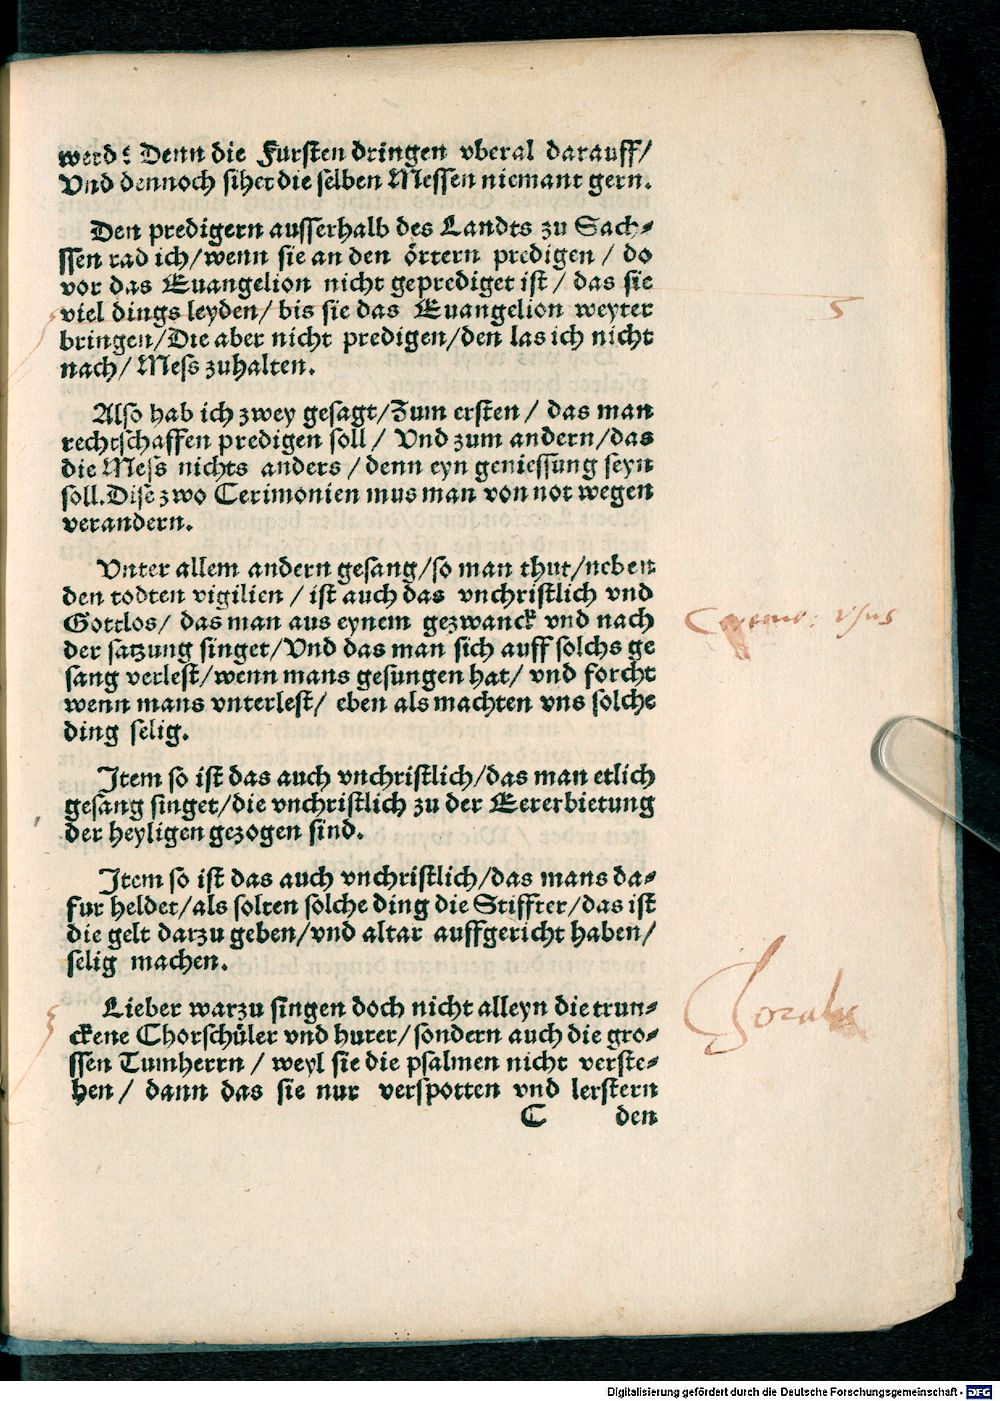 werd? Denn die Fursten dringen vberal darauff/
Vnd dennoch sihet die selben Messen niemant gern.
Den predigern ausserhalb des Landts zu Sach⸗
ssen rad ich/wenn sie an den örtern predigen / do
vor das Euangelion nicht geprediget ist / das sie
viel dings leyden/ bis sie das Euangelion weyter
bringen/Die aber nicht predigen/den las ich nicht
nach/ Mess zuhalten.
Also hab ich zwey gesagt/Zum ersten / das man
rechtschaffen predigen soll / Vnd zum andern/das
die Mess nichts anders / denn eyn geniessung seyn
soll. Dise zwo Cerimonien mus man von not wegen
verandern.
Vnter allem andern gesang/so man thut/neben
den todten vigilien / ist auch das vnchristlich vnd
Gottlos/ das man aus eynem gezwanck vnd nach
der satzung singet/Vnd das man sich auff solchs ge
sang verlest/wenn mans gesungen hat/ vnd forcht
wenn mans vnterlest/ eben als machten vns solche
ding selig.
Item so ist das auch vnchristlich/das man etlich
gesang singet/die vnchristlich zu der Eererbietung
der heyligen gezogen sind.
Item so ist das auch vnchristlich/das mans da⸗
fur heldet/als solten solche ding die Stiffter/das ist
die gelt darzu geben/vnd altar auffgericht haben/
selig machen.
Lieber warzu singen doch nicht alleyn die trun⸗
ckene Chorschüler vnd hurer/sondern auch die gro⸗
ssen Tumherrn / weyl sie die psalmen nicht verste⸗
hen/ dann das sie nur verspotten vnd lerstern
C den
usus
Digitalisierung gefördert durch die Deutsche Forschungsgemeinschaft - DFG